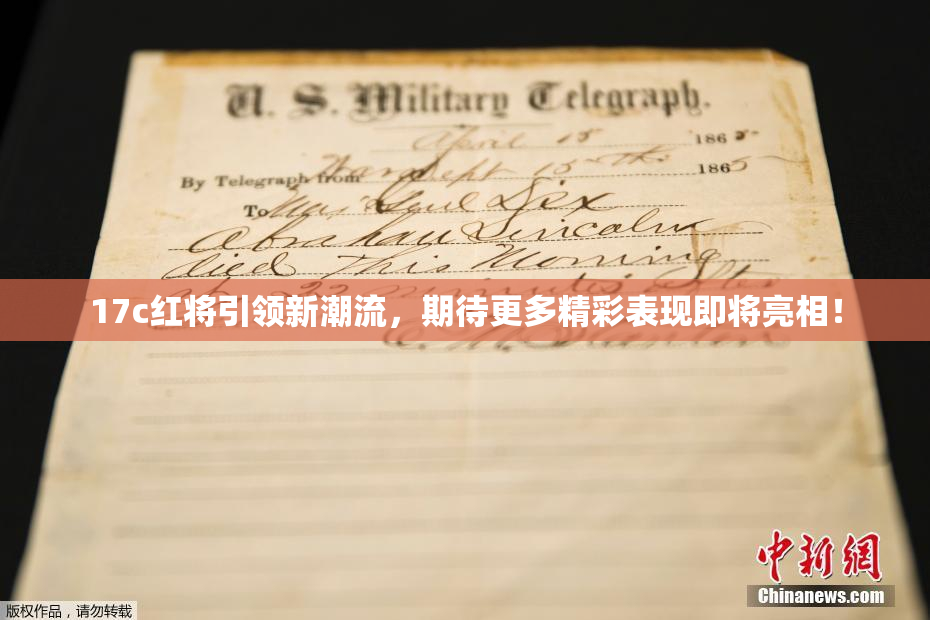 U. S. Military Telegraph.
April 15 1865
By Telegraph from War Dept 15th 1865
To Maj Genl Dix
Abraham Lincoln
died this Morning
at 22 minutes after
17c红将引领新潮流，期待更多精彩表现即将亮相！
E. M. Stanton
中新网
Chinanews.com
版权作品，请勿转载